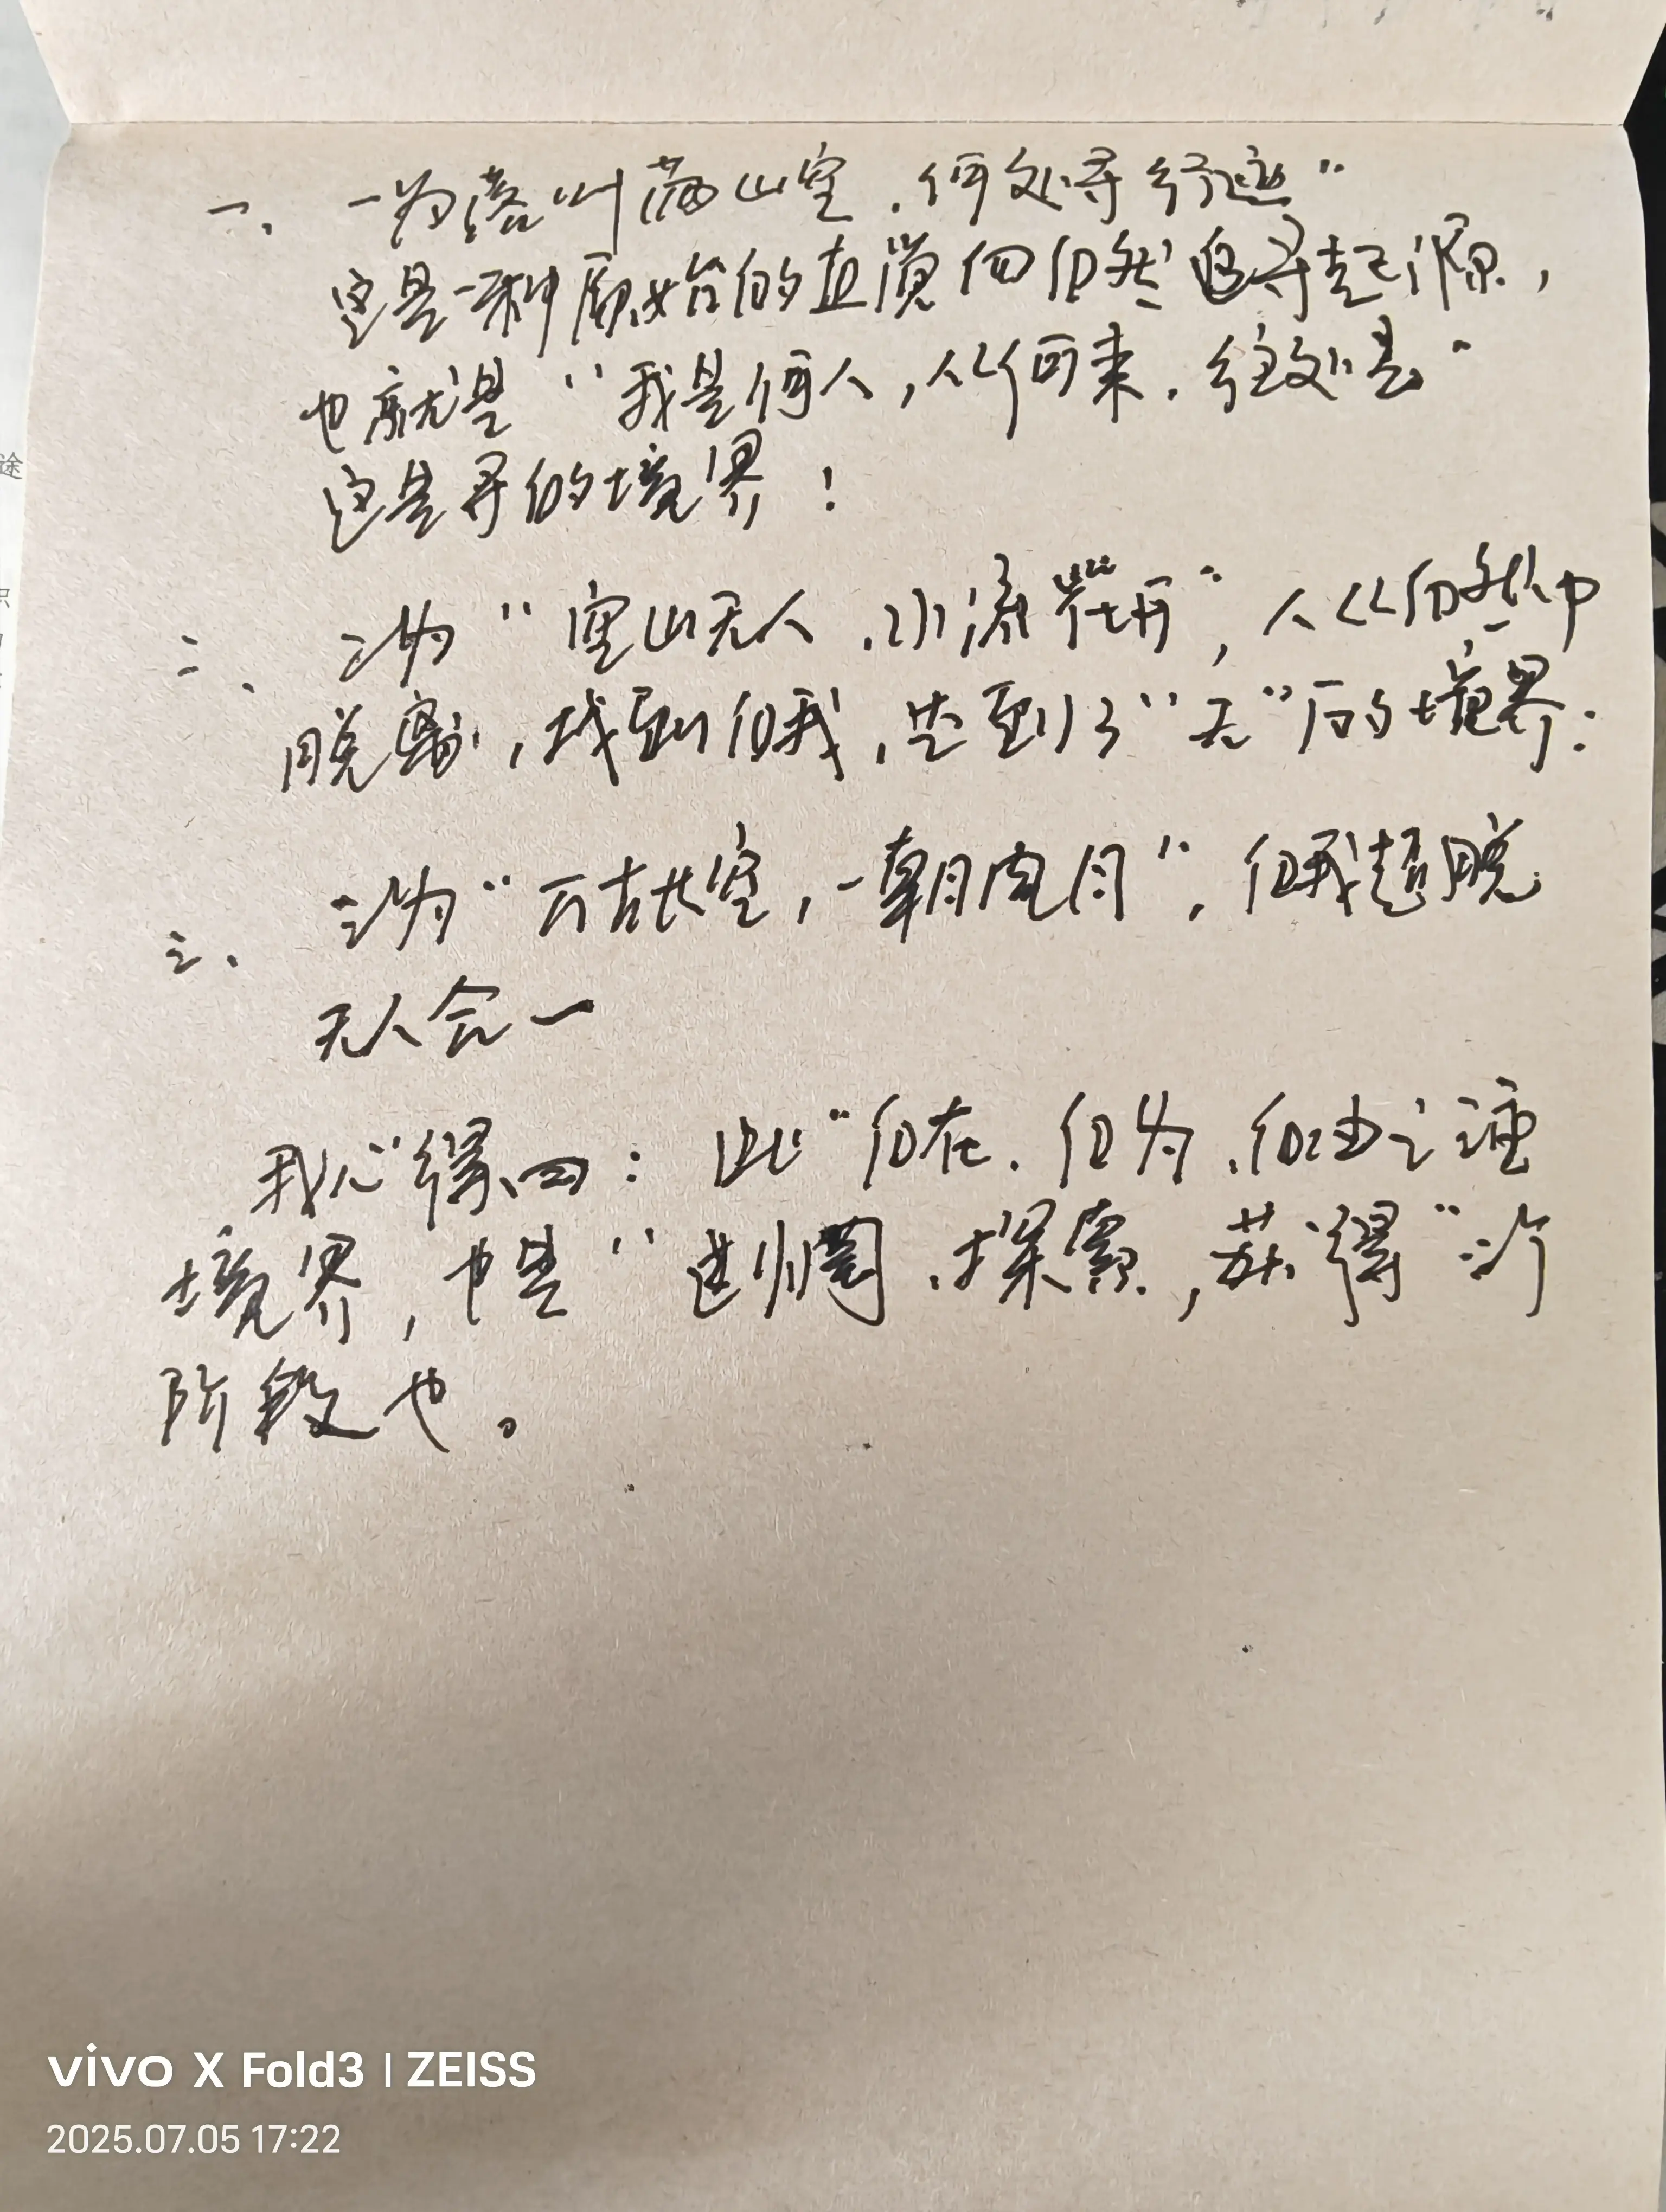 一、一为落叶满山空,何处寻行迹"
这是一种原始的直觉向自然追寻起源,
也就是"我是何人,从何来,往处去"
这是寻的境界!
二、二为"空山无人,水流花开",人从自然中
脱离,找到自我,达到了"无"的境界:
三、三为"万古长空,一朝风月",自我超脱
天人合一
我心得四:此"自在、自为、自由之三重
境界,也是"迷惘、探索,获得"三个
阶段也。
途
识
vivo X Fold3 | ZEISS
2025.07.05 17:22